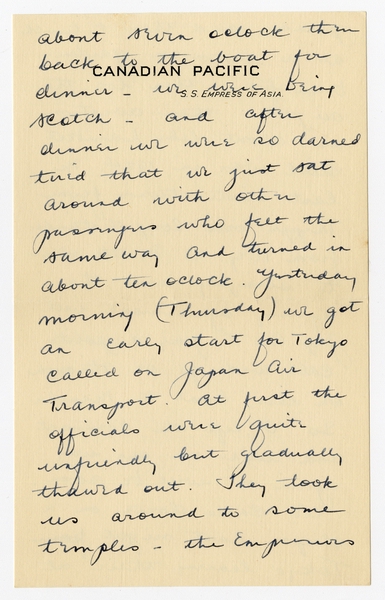 about seven oclock then
back to the boat for
CANADIAN PACIFIC
dinner - we were being
S.S. EMPRESS OF ASIA
scotch - and after
dinner we were so darned
tired that we just sat
around with other
passengers who felt the
same way and turned in
about ten oclock. Yesterday
morning (Thursday) we got
an early start for Tokyo
called on Japan Air
Transport. At first the
officials were quite
unfriendly but gradually
thawed out. They took
us around to some
temples - the Emperors